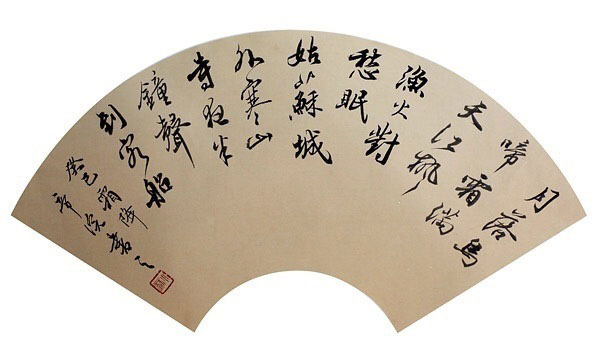 月落烏
啼霜滿
天江楓
漁火對
愁眠
姑蘇城
外寒山
寺夜半
鐘聲
到客船
癸巳霜降
書